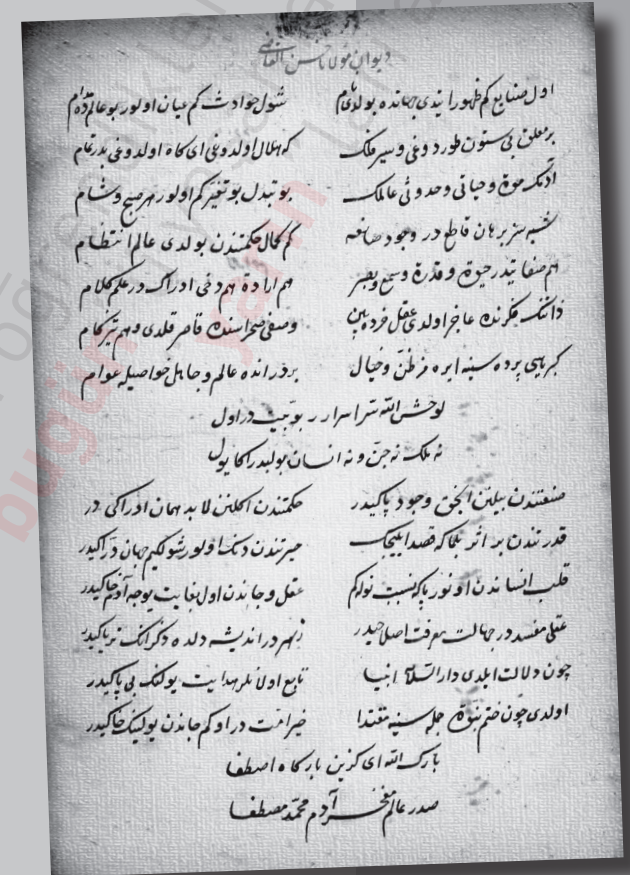 ديوان مولانا حسن القاضى
اول صنايع كم ظهور ايتدى جهانده بولدى نام شول حوادث كم عيان اولور بو عالمده مدام
بر معلق بى ستون طوردوغى و سير فلك كه هلال اولدوغى اى كاه اولدوغى بدر تمام
آدمك موت و حياتى وحدوثى عالمك بو تبدل بو تغير كم اولور هر صبح و شام
شبهه سز برهان قاطع در وجود صانعه كم كمال حكمتندن بولدى عالم انتظام
هم صفاتيدر حيوة و قدرة و سمع و بصر هم ارادة هم دخى ادراك در علم كلام
ذاتنك فكرنده عاجز اولدى عقل خرده بين وصفى صحراسنده قاصر قلدى وهم تيز كام
كبرياسى پرده سينه ايره مز ظن و خيال برذر آنده عالم و جاهل خواصيله عوام
لوحش الله سر اسرار بوحيثدر اول
نه ملك نه جن و نه انسان بولبدر اكا يول
صنعتندن بيلنن انجق وجود پاكيدر حكمتندن اكلنن لابد همان ادراكى در
قدرتندن بر اثر بلكه قصد ايليجك حيرتندن دنك اولور شولكم جهان دراكيدر
قلب انساندن اونور پاكه نسبت نوله كم عقل و جاندن اول بغايت يوجه آدم خاكيدر
عقلى مفسد در جهالت معرفت اصلاحيدر زهر در انديشه دلده ذكر انك ترياكيدر
چون دلالت ايلدى دار السلامه انبيا تابع اولانلر هدايت يولنك بى باكيدر
اولدى چون ختم نبوة جمله سينه مقتدا خير امت در اوكم جاندن يولينك خاكيدر
بارك الله اى كزين باركاه اصطفا
صدر عالم مفخر آدم محمد مصطفا